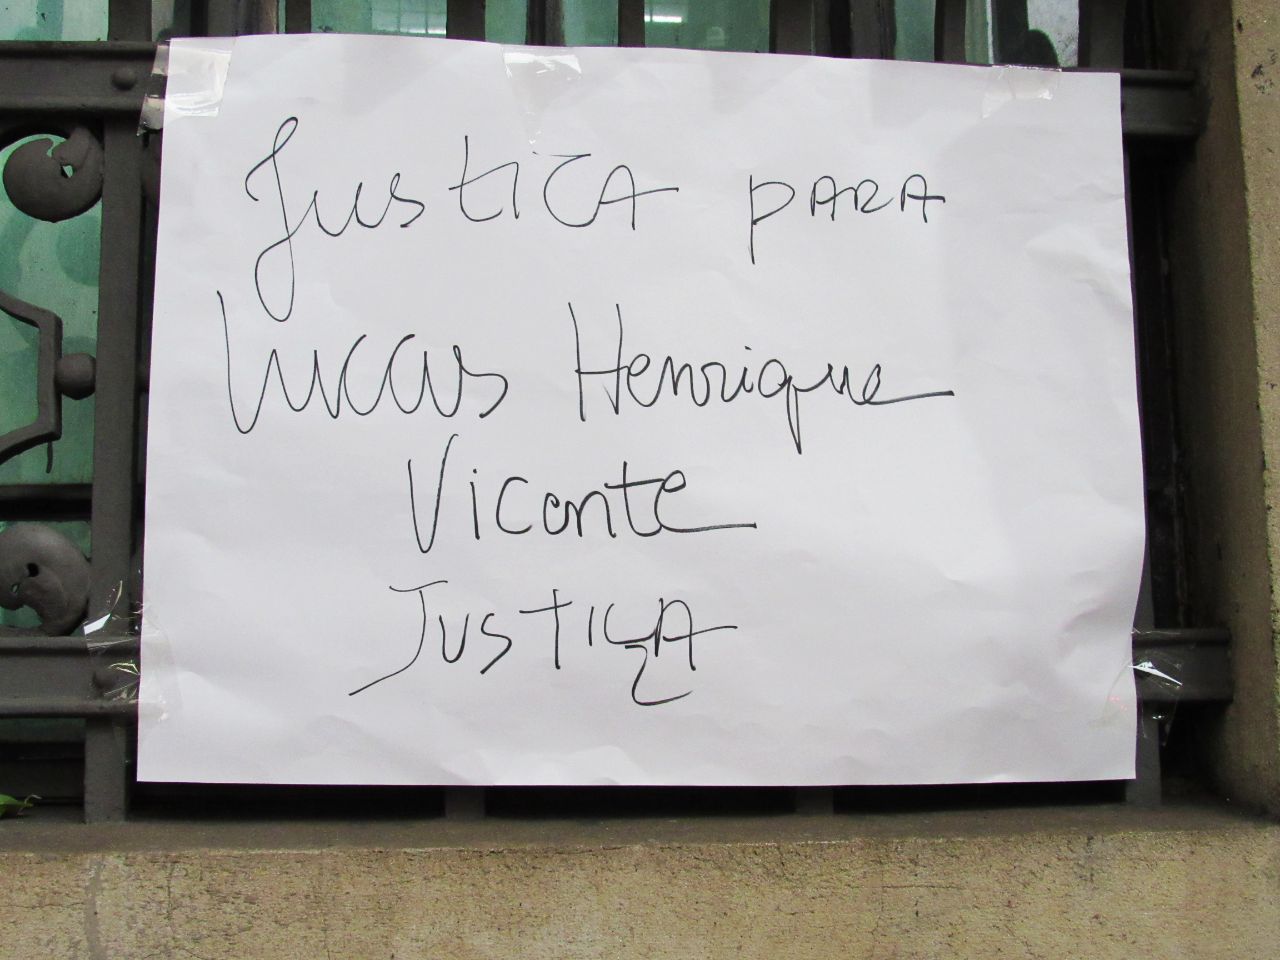 Justica para
Luccas Henrique
Vicente
Justiça